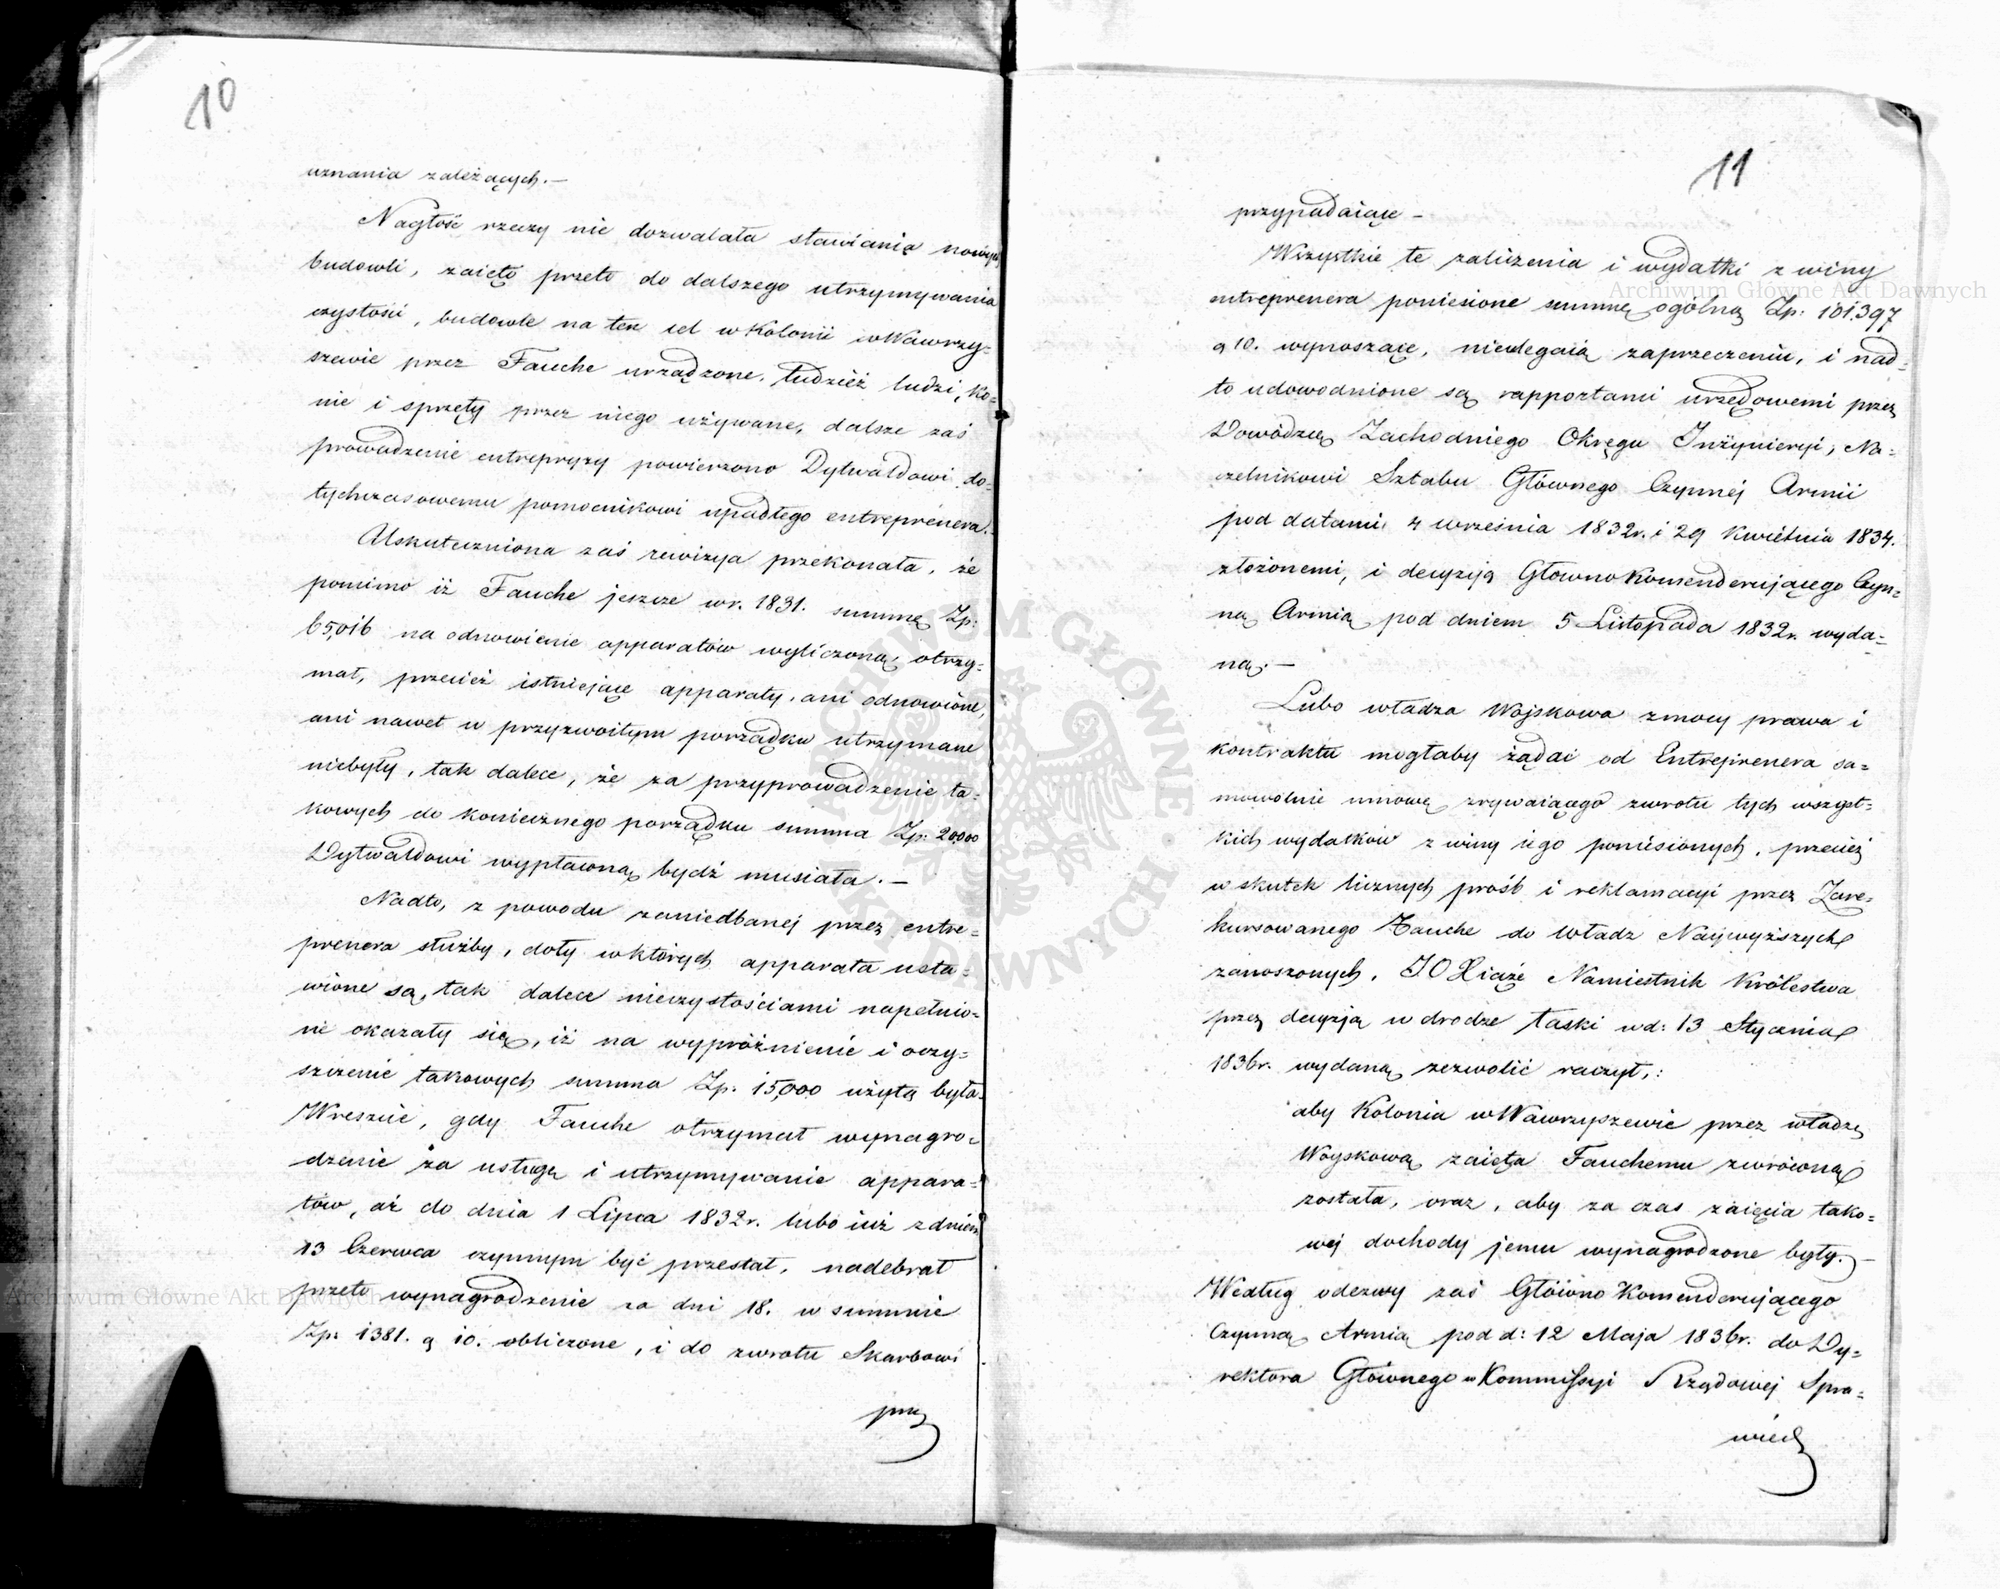 10
uznania zależących.—
Nagłość rzeczy nie dozwalała stawiania nowych
budowli, zaięto przeto do dalszego utrzymywania
czystości, budowle na ten cel w Kolonii w Wawrzy=
szewie przez Fauche urządzone, tudzież ludzi, ko=
nie i sprzęty przez niego używane, dalsze zaś
prowadzenie entrepryzy powierzono Dytwaldowi do=
tychczasowemu pomocnikowi upadłego entreprenera.
Uskuteczniona zaś rewizya przekonała, że
pomimo iż Fauche jeszcze w r. 1831. summę Zp:
65,016 na odnowienie apparatów wyliczoną otrzy=
mał, przecież istniejące apparaty, ani odnowione,
ani nawet w przyzwoitym porządku utrzymane
niebyły, tak dalece, że za przyprowadzenie ta=
kowych do koniecznego porządku summa Zp: 20,000
Dytwaldowi wypłaconą bydź musiała.—
Nadto, z powodu zaniedbanej przez entre=
prenera służby, doły w których apparata usta=
wione są, tak dalece nieczystościami napełnio=
ne okazały się, iż na wypróżnienie i oczy=
szczenie takowych summa Zp. 15,000 użytą była.
Wreszcie, gdy Fauche otrzymał wynagro=
dzenie za usługę i utrzymywanie appara=
tów, aż do dnia 1 Lipca 1832r. lubo iuż z dniem
13 Czerwca czynnym być przestał, nadebrał
przeto wynagrodzenie za dni 18. w summie
Zp: 1381. g 10. obliczone, i do zwrotu Skarbowi
przy
11
przypadaiące—
Wszystkie te zaliczenia i wydatki z winy
entreprenera poniesione summę ogólną Zp: 101,397
g 10. wynoszące, nieulegaią zaprzeczeniu, i nad=
to udowodnione są rapportami urzędowemi przez
Dowódzcę Zachodniego Okręgu Inżynieryi, Na=
czelnikowi Sztabu Głównego Czynnej Armii
pod datami 4 września 1832r. i 29 Kwietnia 1834.
złożonemi, i decyzją Główno Komenderującego Czyn=
ną Armią pod dniem 5 Listopada 1832r. wyda=
ną.—
Lubo władza Wojskowa z mocy prawa i
kontraktu mogłaby żądać od Entreprenera sa=
mowolnie umowę zrywaiącego zwrotu tych wszyst=
kich wydatków z winy iego poniesionych, przecież
w skutek licznych próśb i reklamacyi przez Zare=
kursowanego Fauche do Władz Naywyższych
zanoszonych, JO Xiąże Namiestnik Królestwa
przez decyzją w drodze łaski w d: 13 Stycznia
1836r. wydaną zezwolić raczył,:
aby Kolonia w Wawrzyszewie przez władzę
Woyskową zaięta Fauchemu zwróconą
została, oraz, aby za czas zaięcia tako=
wej dochody jemu wynagrodzone były.—
Według odezwy zaś Główno Komenderującego
Czynną Armią pod d: 12 Maja 1836r. do Dy=
rektora Głównego w Kommissyi Rządowej Spra=
wiedl
Archiwum Główne Akt Dawnych
Archiwum Główne Akt Dawnych
ARCHIWUM GŁÓWNE AKT DAWNYCH